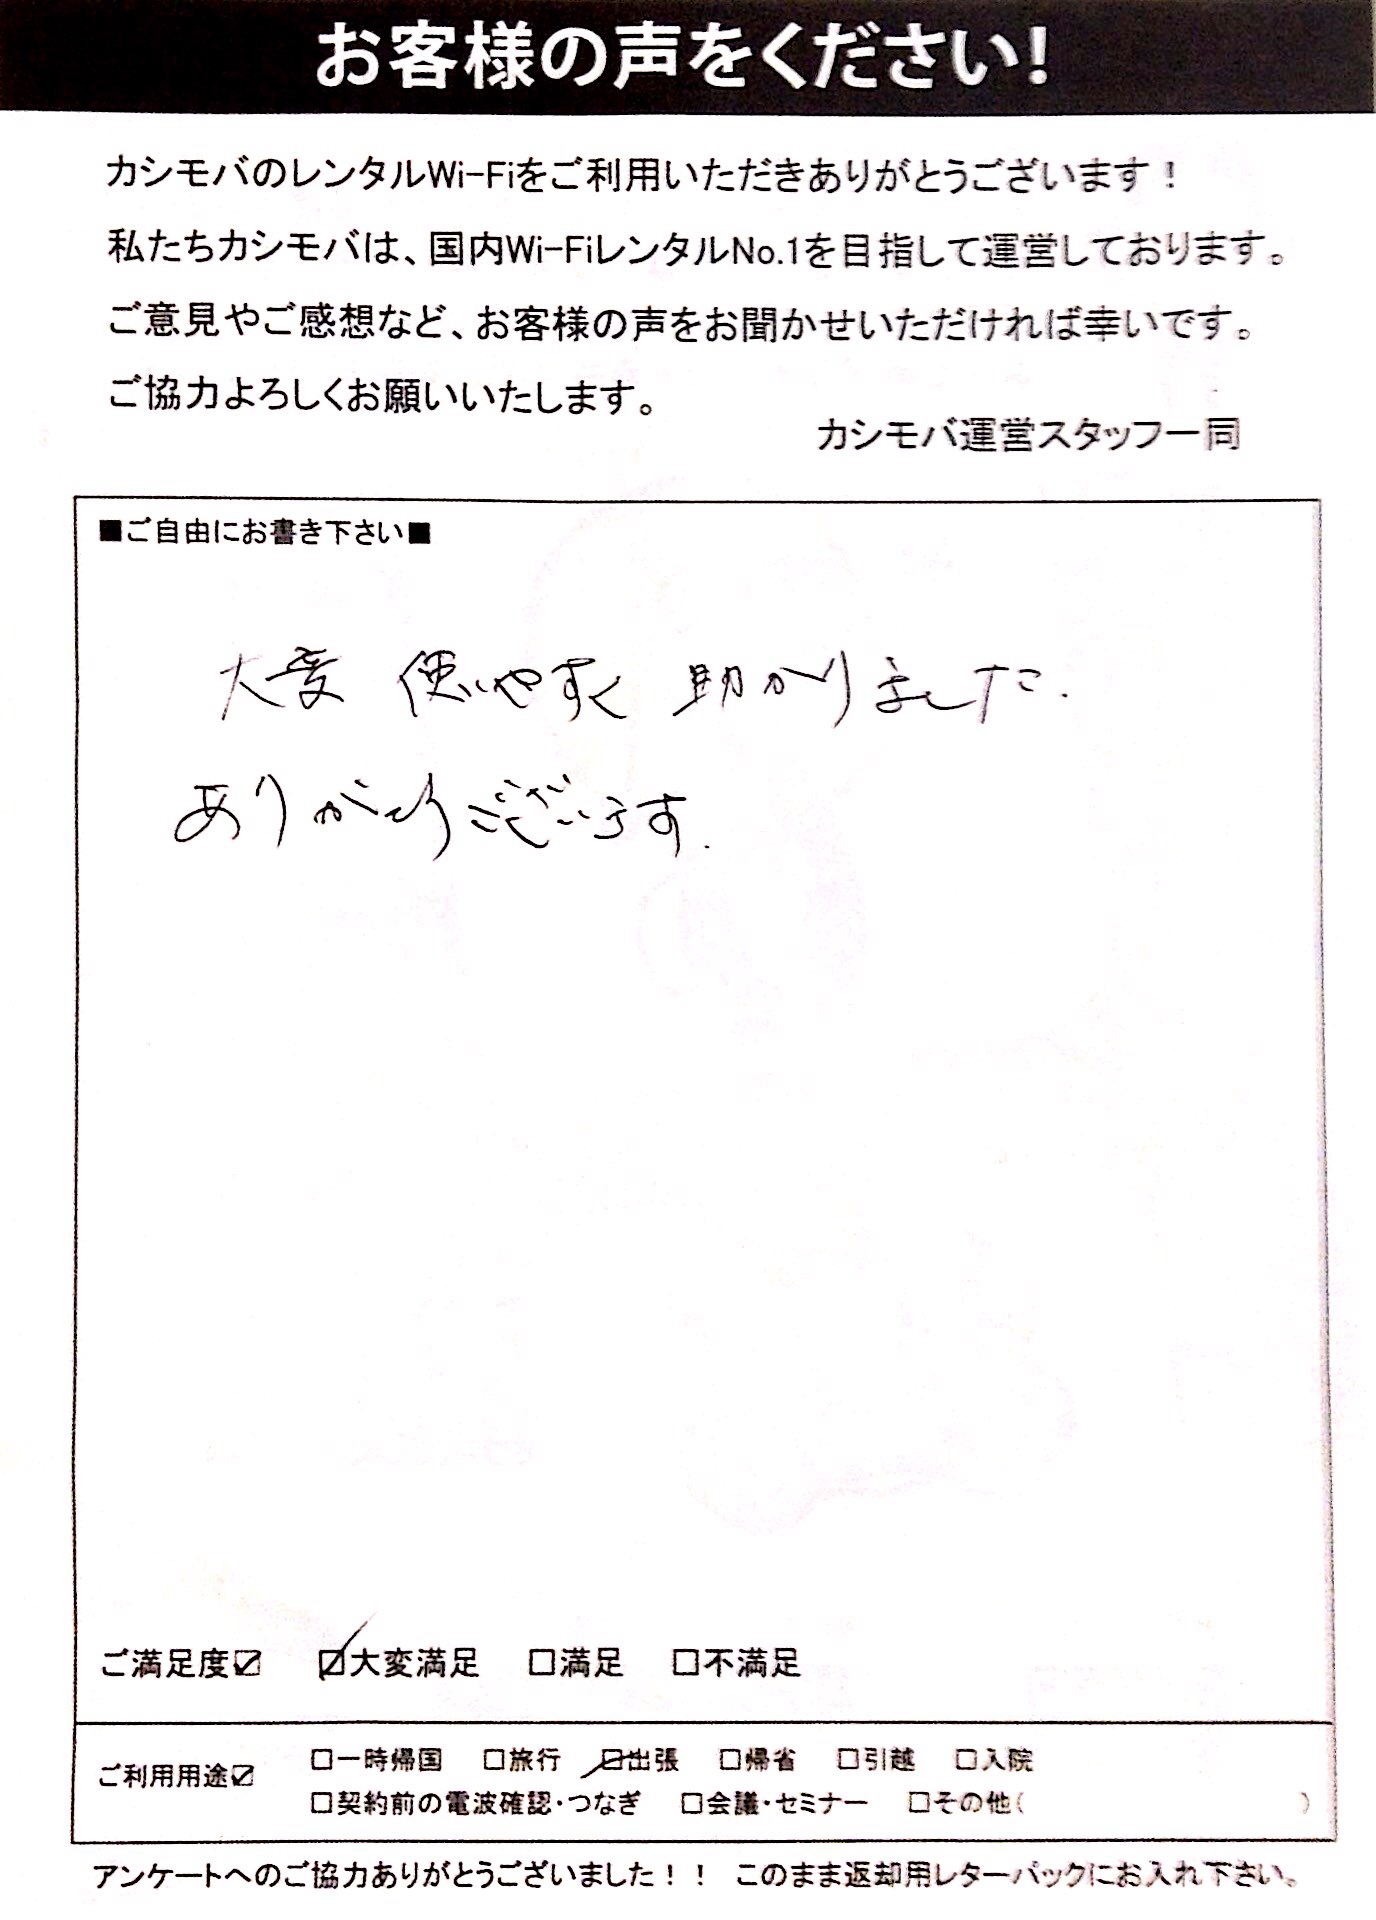 お客様の声をください!
カシモバのレンタルWi-Fiをご利用いただきありがとうございます！
私たちカシモバは、国内Wi-FiレンタルNo.1を目指して運営しております。
ご意見やご感想など、お客様の声をお聞かせいただければ幸いです。
ご協力よろしくお願いいたします。
カシモバ運営スタッフ一同
■ご自由にお書き下さい■
大変 使いやすく 助かりました.
ありがとうございます.
ご満足度☑ ☑大変満足 □満足 □不満足
ご利用用途☑ □一時帰国 □旅行 ☑出張 □帰省 □引越 □入院
□契約前の電波確認・つなぎ □会議・セミナー □その他( )
アンケートへのご協力ありがとうございました！！ このまま返却用レターパックにお入れ下さい。